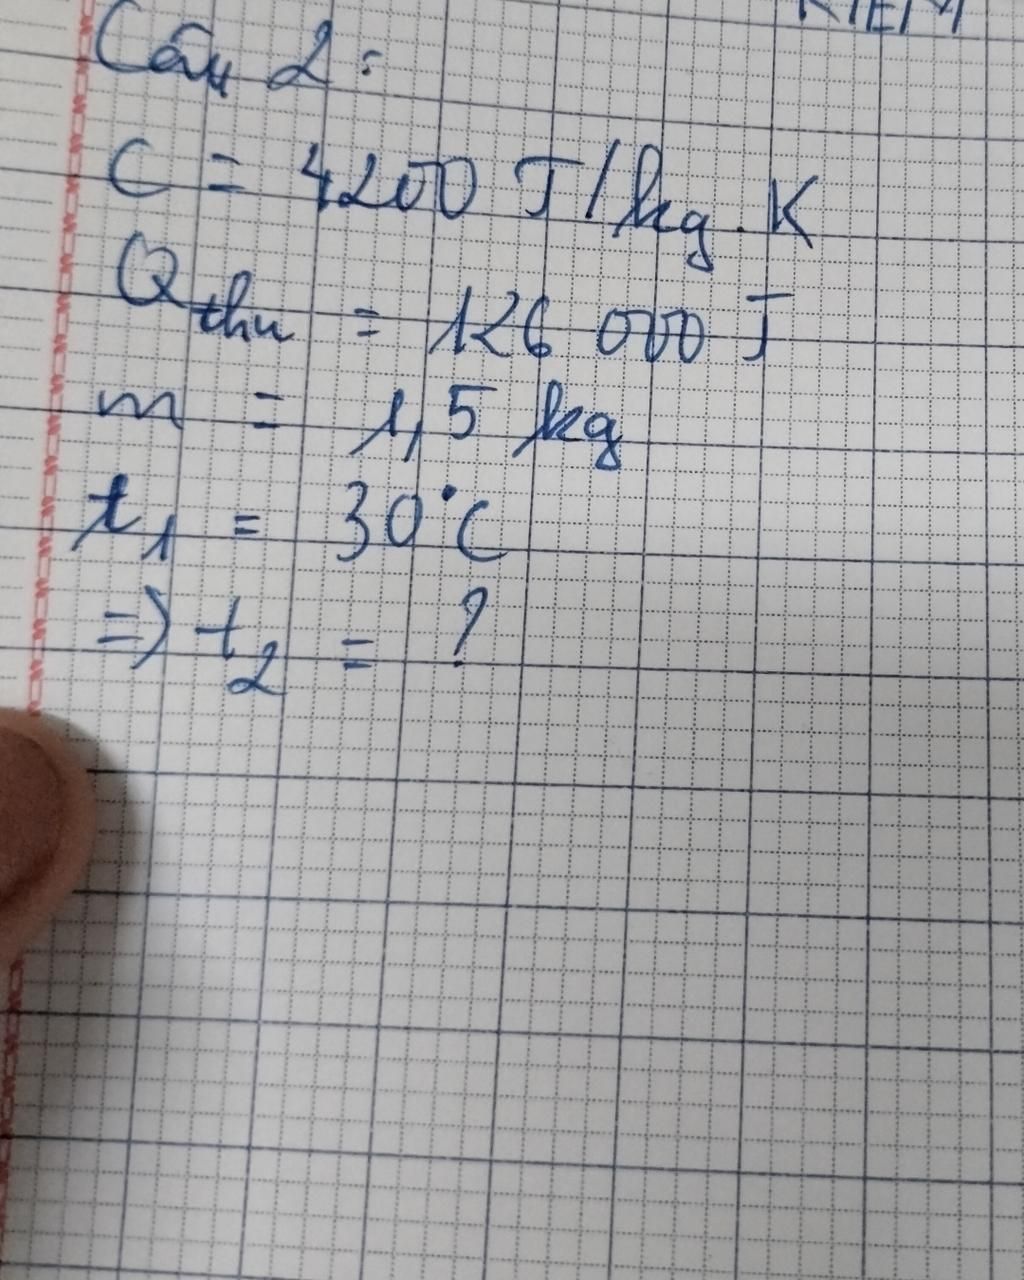 Câu 2:
C = 4200 J/kg.K
Qthu = 126 000 J
m = 1,5 kg
t1 = 30°C
=> t2 = ?